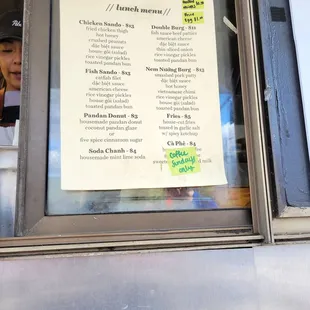 // lunch menu //
Chicken Sando - $12
fried chicken thigh
hot honey
crushed peanuts
đặc biệt sauce
house gỏi (salad)
rice vinegar pickles
toasted pandan bun
Fish Sando - $13
catfish filet
đặc biệt sauce
rice vinegar pickles
house gỏi (salad)
toasted pandan bun
Pandan Donut - $2
housemade pandan donut
coconut pandan glaze
or
five spice cinnamon sugar
Soda Chanh - $4
housemade mint lime soda
Double Burg - $11
fish sauce beef patties
american cheese
đặc biệt sauce
thin sliced onion
rice vinegar pickles
toasted pandan bun
Nem Nướng Burg - $12
smashed pork patty
đặc biệt sauce
american cheese
hot honey
rice vinegar pickles
toasted pandan bun
Fries - $5
house-cut fries
tossed in garlic salt
w/ spicy ketchup
Cà Phê - $5
milk
Coffee
Sundays
only